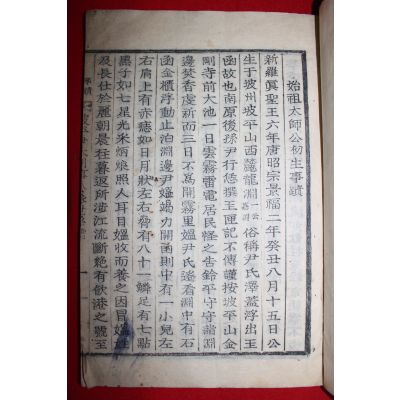 始祖太師公初生事蹟
新羅眞聖王六年唐昭宗景福二年癸丑八月十五日公
生于坡州坡平山西麓龍淵俗稱尹氏澤蓋浮出玉
函故也南原後孫尹行恁撰玉匣記不傳謹按坡平山金
剛寺前大池一日雲霧雷電居民怪之告鈴平守守詣淵
邊焚香虔祈而三日不爲開霧里媼尹氏遙看淵中有石
函金櫃浮動止泊淵邊尹媼竭力開函則中有一小兒左
右肩上有赤痣如日月狀左右脅有八十一鱗足有七點
黑子如七星光采炳煥照人耳目媼收而養之因冒媼姓
及長仕於麗朝晨往暮返所涉江流斷絶有飮港之號至